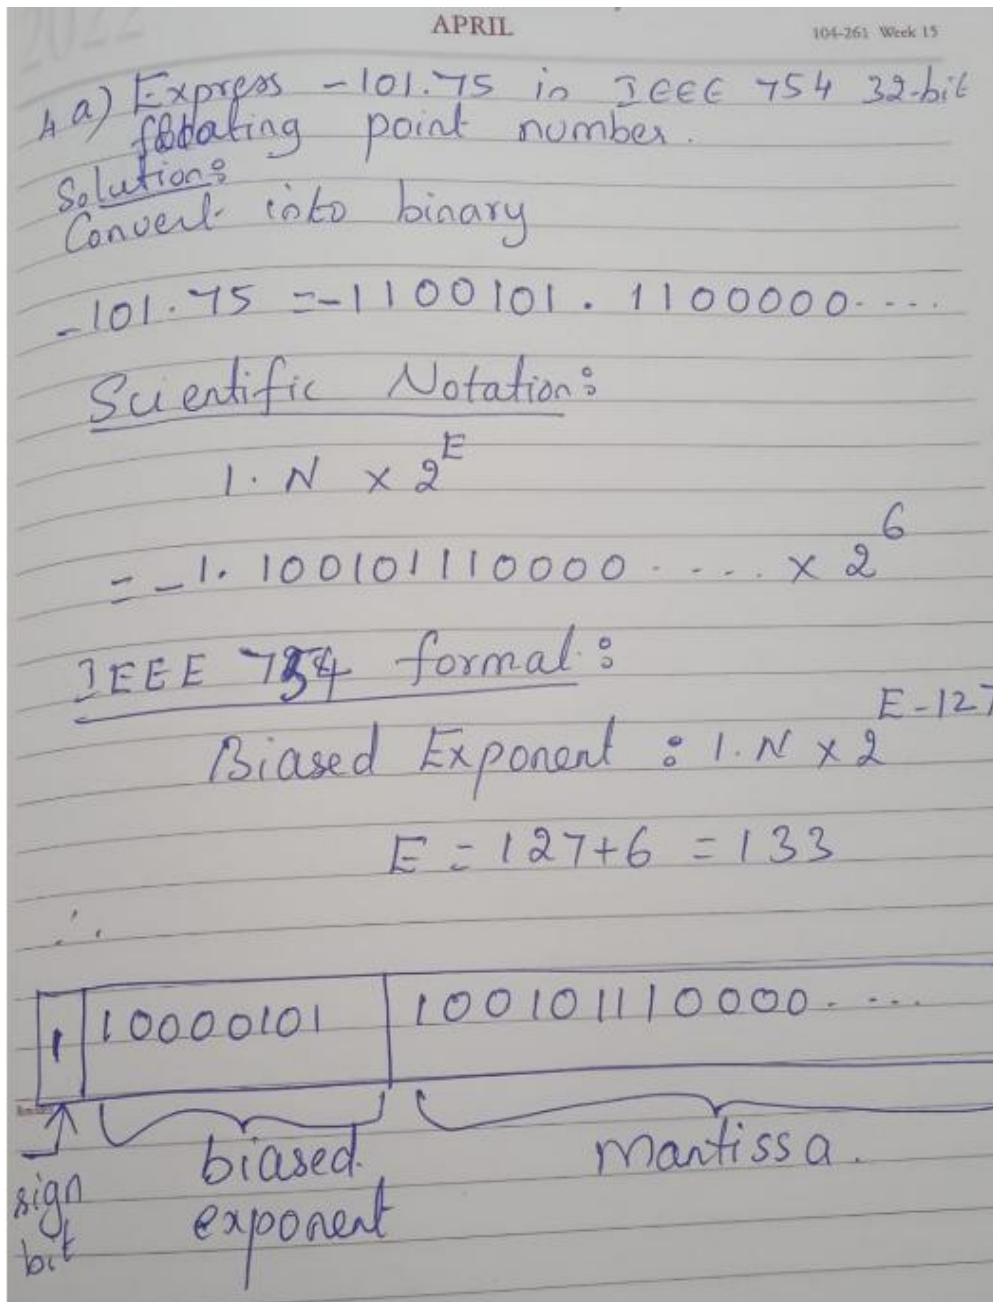 2022
APRIL
104-261 Week 15
4a) Express -101.75 in IEEE 754 32-bit
floating point number.
Solution:
Convert into binary
-101.75 = -1100101.1100000....
Scientific Notation:
1.N × 2^E
= -1.100101110000..... × 2^6
IEEE 754 format:
Biased Exponent : 1.N × 2^E-127
E = 127+6 = 133
∴
1 10000101 100101110000....
sign bit
biased exponent
mantissa.